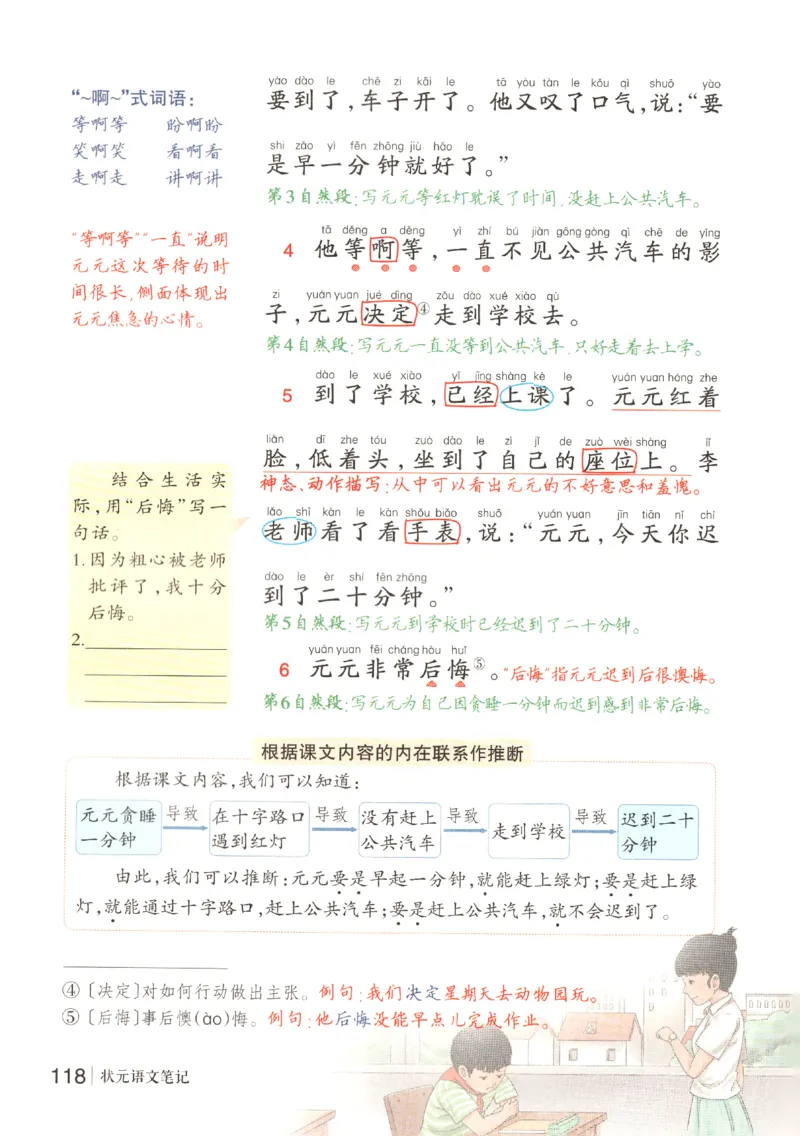 “~啊~”式词语：
等啊等 盼啊盼
笑啊笑 看啊看
走啊走 讲啊讲
“等啊等”“一直”说明
元元这次等待的时
间很长，侧面体现出
元元焦急的心情。
yào dào le chē zi kāi le tā yòu tàn le kǒu qì shuō yào
要到了，车子开了。他又叹了口气，说：“要
shi zǎo yì fēn zhōng jiù hǎo le
是早一分钟就好了。”
第3自然段：写元元等红灯耽误了时间，没赶上公共汽车。
tā děng a děng yì zhí bú jiàn gōng gòng qì chē de yǐng
4 他等啊等，一直不见公共汽车的影
zi yuán yuan jué dìng zǒu dào xué xiào qù
子，元元决定④走到学校去。
第4自然段：写元元一直没等到公共汽车，只好走着去上学。
dào le xué xiào yǐ jīng shàng kè le yuán yuan hóng zhe
5 到了学校，已经上课了。元元红着
liǎn dī zhe tóu zuò dào le zì jǐ de zuò wèi shàng lǐ
脸，低着头，坐到了自己的座位上。李
神态、动作描写：从中可以看出元元的不好意思和羞愧。
lǎo shī kàn le kàn shǒu biǎo shuō yuán yuan jīn tiān nǐ chí
老师看了看手表，说：“元元，今天你迟
dào le èr shí fēn zhōng
到了二十分钟。”
第5自然段：写元元到学校时已经迟到了二十分钟。
yuán yuan fēi cháng hòu huǐ
6 元元非常后悔⑤。“后悔”指元元迟到后很懊悔。
第6自然段：写元元为自己因贪睡一分钟而迟到感到非常后悔。
结合生活实
际，用“后悔”写一
句话。
1.因为粗心被老师
批评了，我十分
后悔。
2.
根据课文内容的内在联系作推断
根据课文内容，我们可以知道：
元元贪睡一分钟 导致 在十字路口遇到红灯 导致 没有赶上公共汽车 导致 走到学校 导致 迟到二十分钟
由此，我们可以推断：元元要是早起一分钟，就能赶上绿灯；要是赶上绿
灯，就能通过十字路口，赶上公共汽车；要是赶上公共汽车，就不会迟到了。
④〔决定〕对如何行动做出主张。例句：我们决定星期天去动物园玩。
⑤〔后悔〕事后懊(ào)悔。例句：他后悔没能早点儿完成作业。
118 状元语文笔记